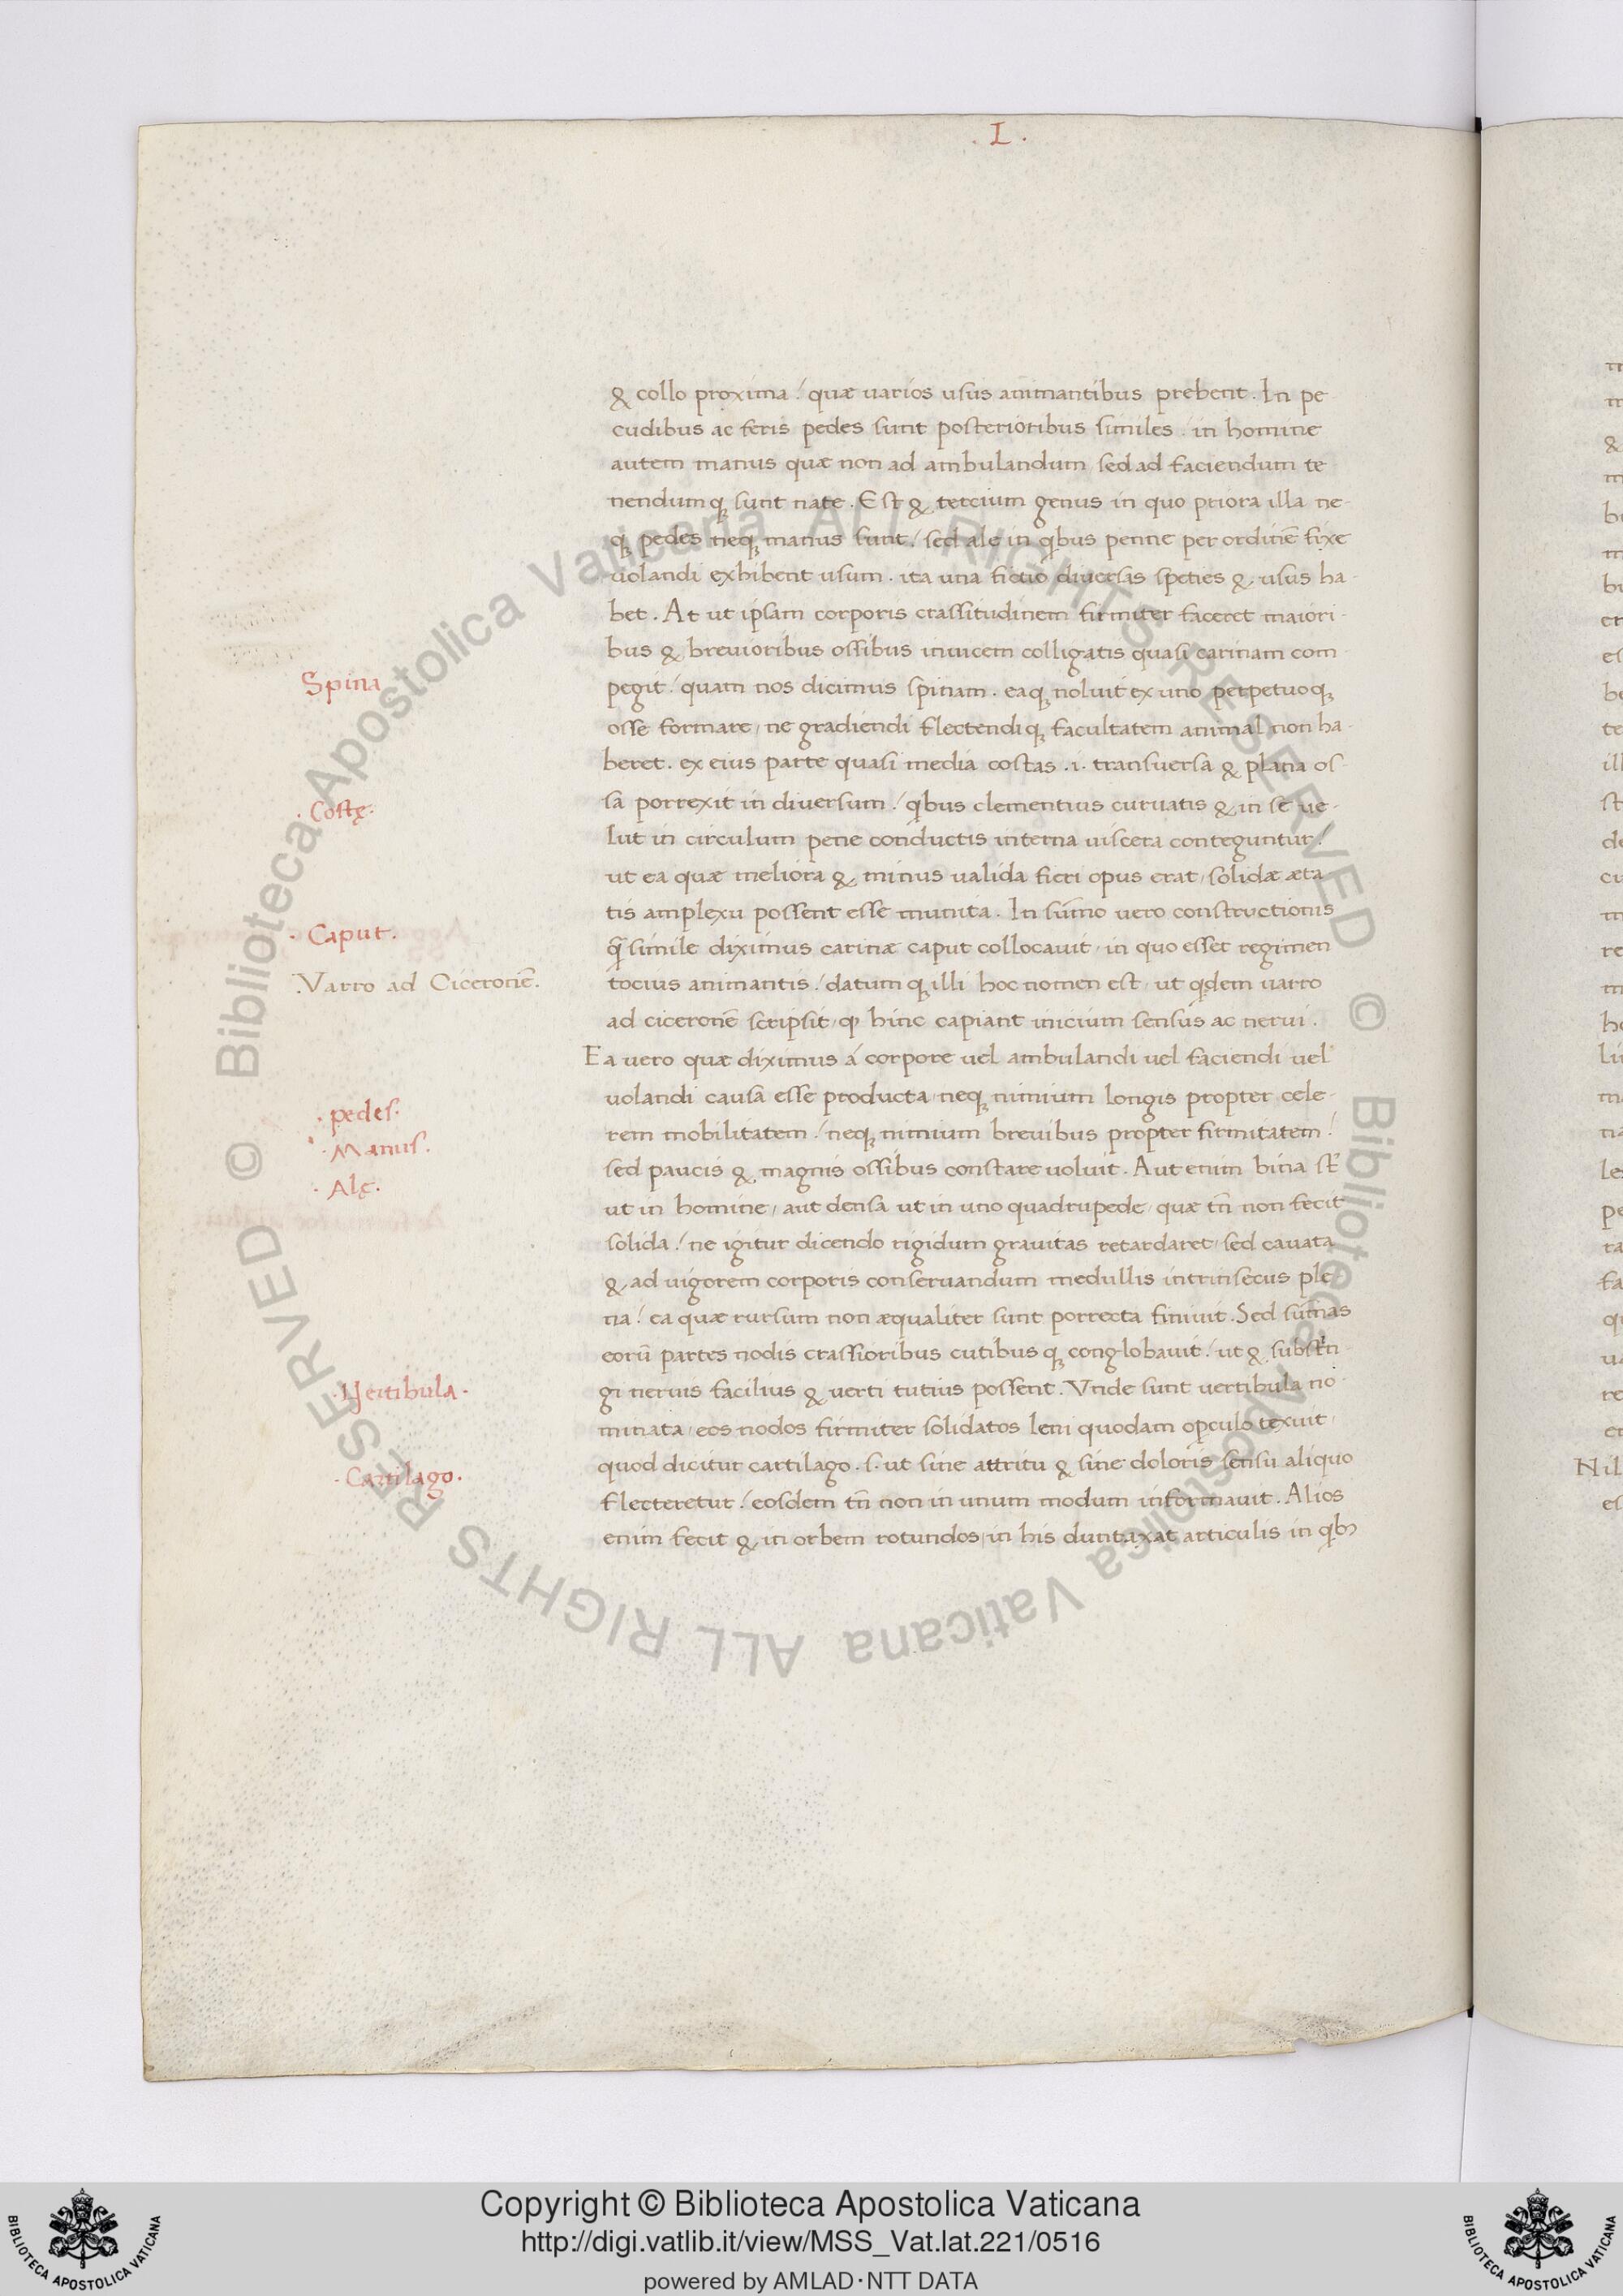 . I .
& collo proxima / quæ uarios usus animantibus prebent . In pe
cudibus ac feris pedes sunt posterioribus similes . in homine
autem manus quæ non ad ambulandum sed ad faciendum te
nendumq; sunt nate . Est & tercium genus in quo priora illa ne-
q; pedes neq; manus sunt / sed ale in qibus penne per ordinē fixe
uolandi exhibent usum . ita una fictio diuersas speties & usus ha-
bet . At ut ipsam corporis crassitudinem firmiter faceret maiori-
bus & breuioribus ossibus inuicem colligatis quasi carinam com
Spina
pegit / quam nos dicimus spinam . eaq; noluit ex uno perpetuoq;
osse formare, ne gradiendi flectendiq; facultatem animal non ha-
beret . ex eius parte quasi media costas .i. transuersa & plana os-
. Costę .
sa porrexit in diuersum / qibus clementius curuatis & in se ue-
lut in circulum pene conductis interna uiscera conteguntur /
ut ea quæ meliora & minus ualida fieri opus erat, solidæ æta
tis amplexu possent esse munita . In sūmo uero constructionis
. Caput .
qā simile diximus carinæ caput collocauit, in quo esset regimen
. Varro ad Ciceronē .
tocius animantis / datumq; illi hoc nomen est, ut qidem uarro
ad ciceronē scripsit, ꝙ hinc capiant inicium sensus ac nerui .
Ea uero quæ diximus á corpore uel ambulandi uel faciendi uel
uolandi causa esse producta, neq; nimium longis propter cele-
. pedes .
rem mobilitatem / neq; nimium breuibus propter firmitatem /
. Manus .
sed paucis & magnis ossibus constare uoluit . Aut enim bina st̄
. Alę .
ut in homine, aut densa ut in uno quadrupede, quæ tn̄ non fecit
solida / ne igitur dicendo rigidum grauitas retardaret, sed cauata
& ad uigorem corporis conseruandum medullis intrinsecus ple-
na / ea quæ rursum non æqualiter sunt porrecta finiuit . Sed sūmas
eorū partes nodis crassioribus cutibusq; conglobauit / ut & substrin
. Vertibula .
gi neruis facilius & uerti tutius possent . Vnde sunt uertibula no-
minata, eos nodos firmiter solidatos leni quodam opculo texuit,
. Cartilago .
quod dicitur cartilago . s. ut sine attritu & sine doloris sensu aliquo
flecteretur / eosdem tn̄ non in unum modum informauit . Alios
enim fecit & in orbem rotundos, in his duntaxat articulis in qibȝ
Copyright © Biblioteca Apostolica Vaticana
http://digi.vatlib.it/view/MSS_Vat.lat.221/0516
powered by AMLAD·NTT DATA
BIBLIOTECA APOSTOLICA VATICANA
BIBLIOTECA APOSTOLICA VATICANA
© Biblioteca Apostolica Vaticana ALL RIGHTS RESERVED
© Biblioteca Apostolica Vaticana ALL RIGHTS RESERVED